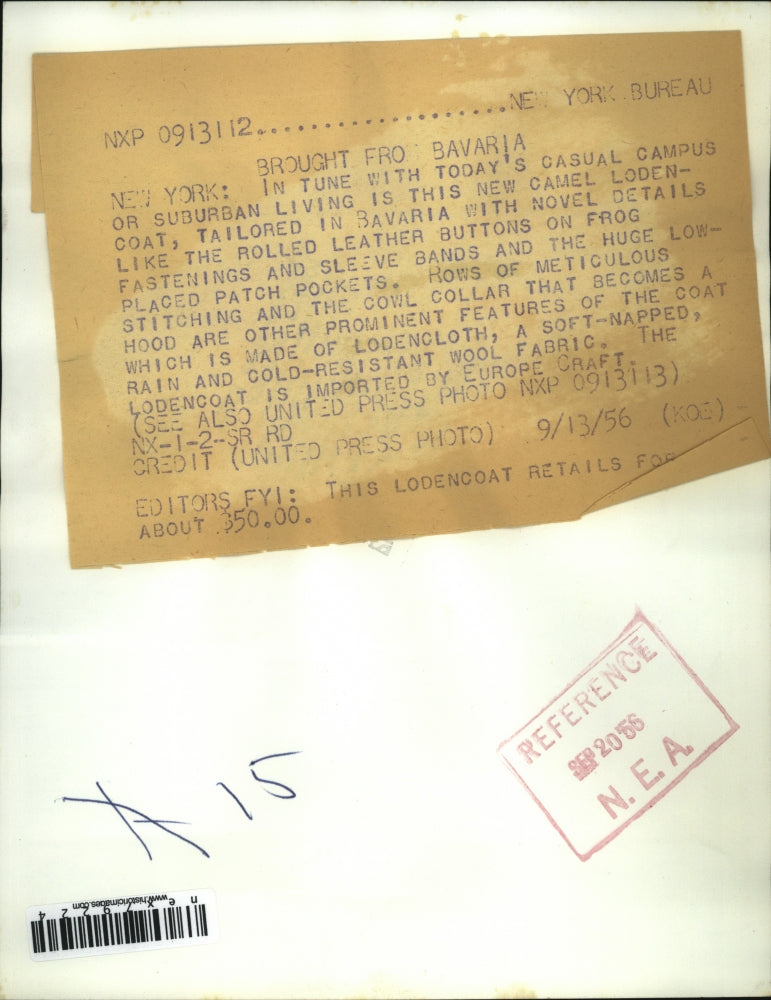 NXP 0913112...................NEW YORK BUREAU
BROUGHT FRO BAVARIA
NEW YORK: IN TUNE WITH TODAY'S CASUAL CAMPUS
OR SUBURBAN LIVING IS THIS NEW CAMEL LODEN-
COAT, TAILORED IN BAVARIA WITH NOVEL DETAILS
LIKE THE ROLLED LEATHER BUTTONS ON FROG
FASTENINGS AND SLEEVE BANDS AND THE HUGE LOW-
PLACED PATCH POCKETS. ROWS OF METICULOUS
STITCHING AND THE COWL COLLAR THAT BECOMES A
HOOD ARE OTHER PROMINENT FEATURES OF THE COAT
WHICH IS MADE OF LODENCLOTH, A SOFT-NAPPED,
RAIN AND COLD-RESISTANT WOOL FABRIC. THE
LODENCOAT IS IMPORTED BY EUROPE CRAFT.
(SEE ALSO UNITED PRESS PHOTO NXP 0913113)
NX-1-2--SR RD
CREDIT (UNITED PRESS PHOTO) 9/13/56 (KOE)
EDITORS FYI: THIS LODENCOAT RETAILS FOR
ABOUT $50.00.
REFERENCE
SEP 20 56
N. E. A.
A 15
nex79224
www.historicimages.com